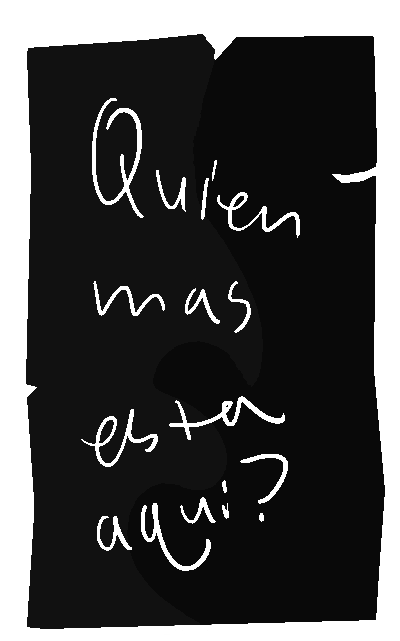 Quien
mas
esta
aqui?